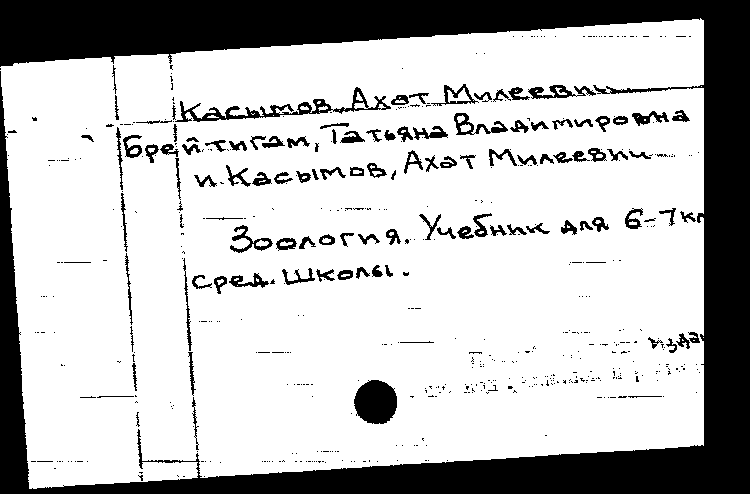 Касымов, Ахат Милеевич
Брейтигам, Татьяна Владимировна
и Касымов, Ахат Милеевич
Зоология. Учебник для 6-7 кл
сред. школы.
издан